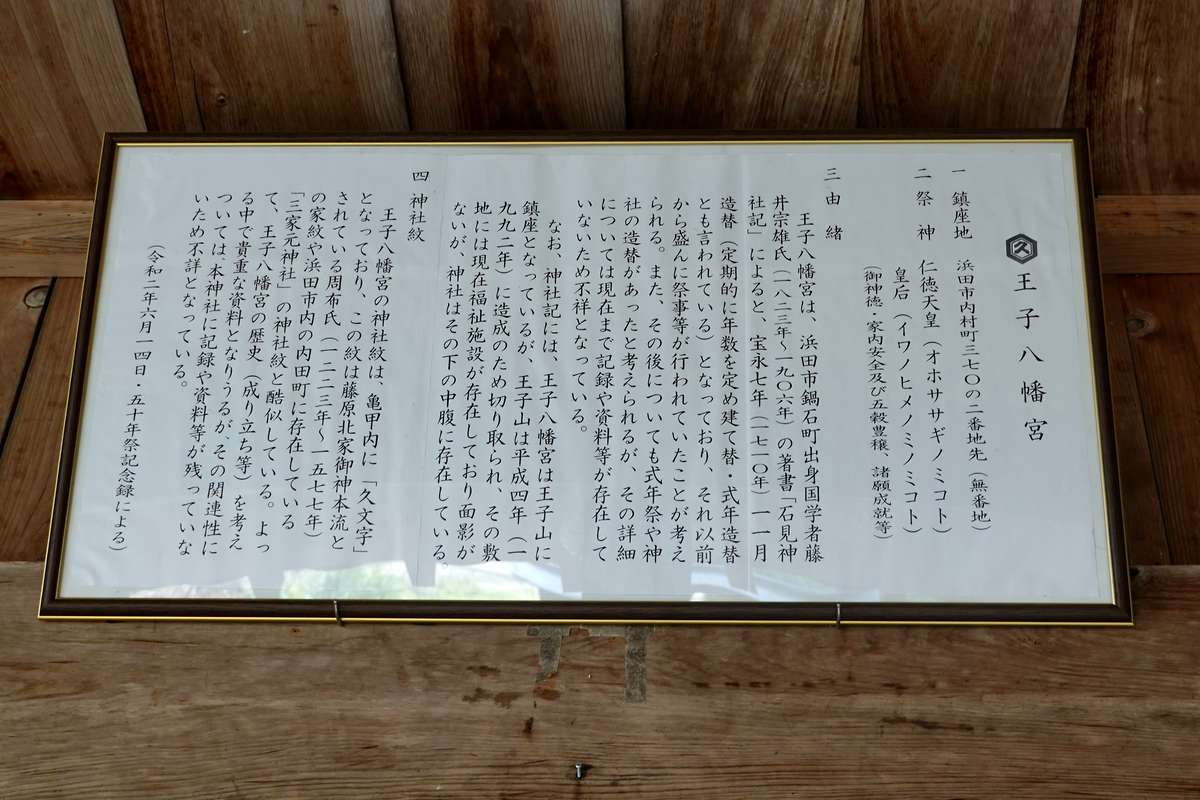 久 王子八幡宮
一 鎮座地 浜田市内村町三七〇の二番地先（無番地）
二 祭神 仁徳天皇（オホササギノミコト）
皇后（イワノヒメノミノミコト）
（御神徳・家内安全及び五穀豊穣、諸願成就等）
三 由緒
王子八幡宮は、浜田市鍋石町出身国学者藤
井宗雄氏（一八二三年～一九〇六年）の著書「石見神
社記」によると、宝永七年（一七一〇年）一一月
造替（定期的に年数を定め建て替・式年造替
とも言われている）となっており、それ以前
から盛んに祭事等が行われていたことが考え
られる。また、その後についても式年祭や神
社の造替があったと考えられるが、その詳細
については現在まで記録や資料等が存在して
いないため不祥となっている。
なお、神社記には、王子八幡宮は王子山に
鎮座となっているが、王子山は平成四年（一
九九二年）に造成のため切り取られ、その敷
地には現在福祉施設が存在しており面影が
ないが、神社はその下の中腹に存在している。
四 神社紋
王子八幡宮の神社紋は、亀甲内に「久文字」
となっており、この紋は藤原北家御神本流と
されている周布氏（一二二三年～一五七七年）
の家紋や浜田市内の内田町に存在している
「三家元神社」の神社紋と酷似している。よっ
て、王子八幡宮の歴史（成り立ち等）を考え
る中で貴重な資料となりうるが、その関連性に
ついては、本神社に記録や資料等が残っていな
いため不詳となっている。
（令和二年六月一四日・五十年祭記念録による）